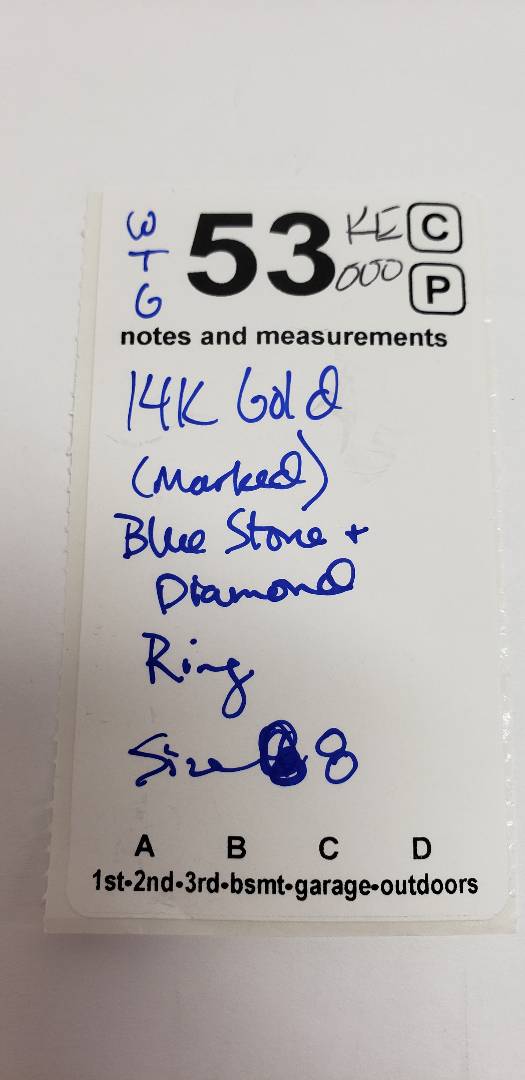 WTG 53 KE C
000 P
notes and measurements
14K Gold
(Marked)
Blue Stone +
Diamond
Ring
Size 8
A B C D
1st-2nd-3rd-bsmt-garage-outdoors